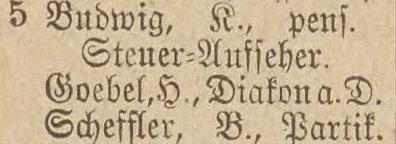 5 Budwig, K., penſ.
Steuer=Aufſeher.
Goebel, H., Diakon a. D.
Scheffler, B., Partik.